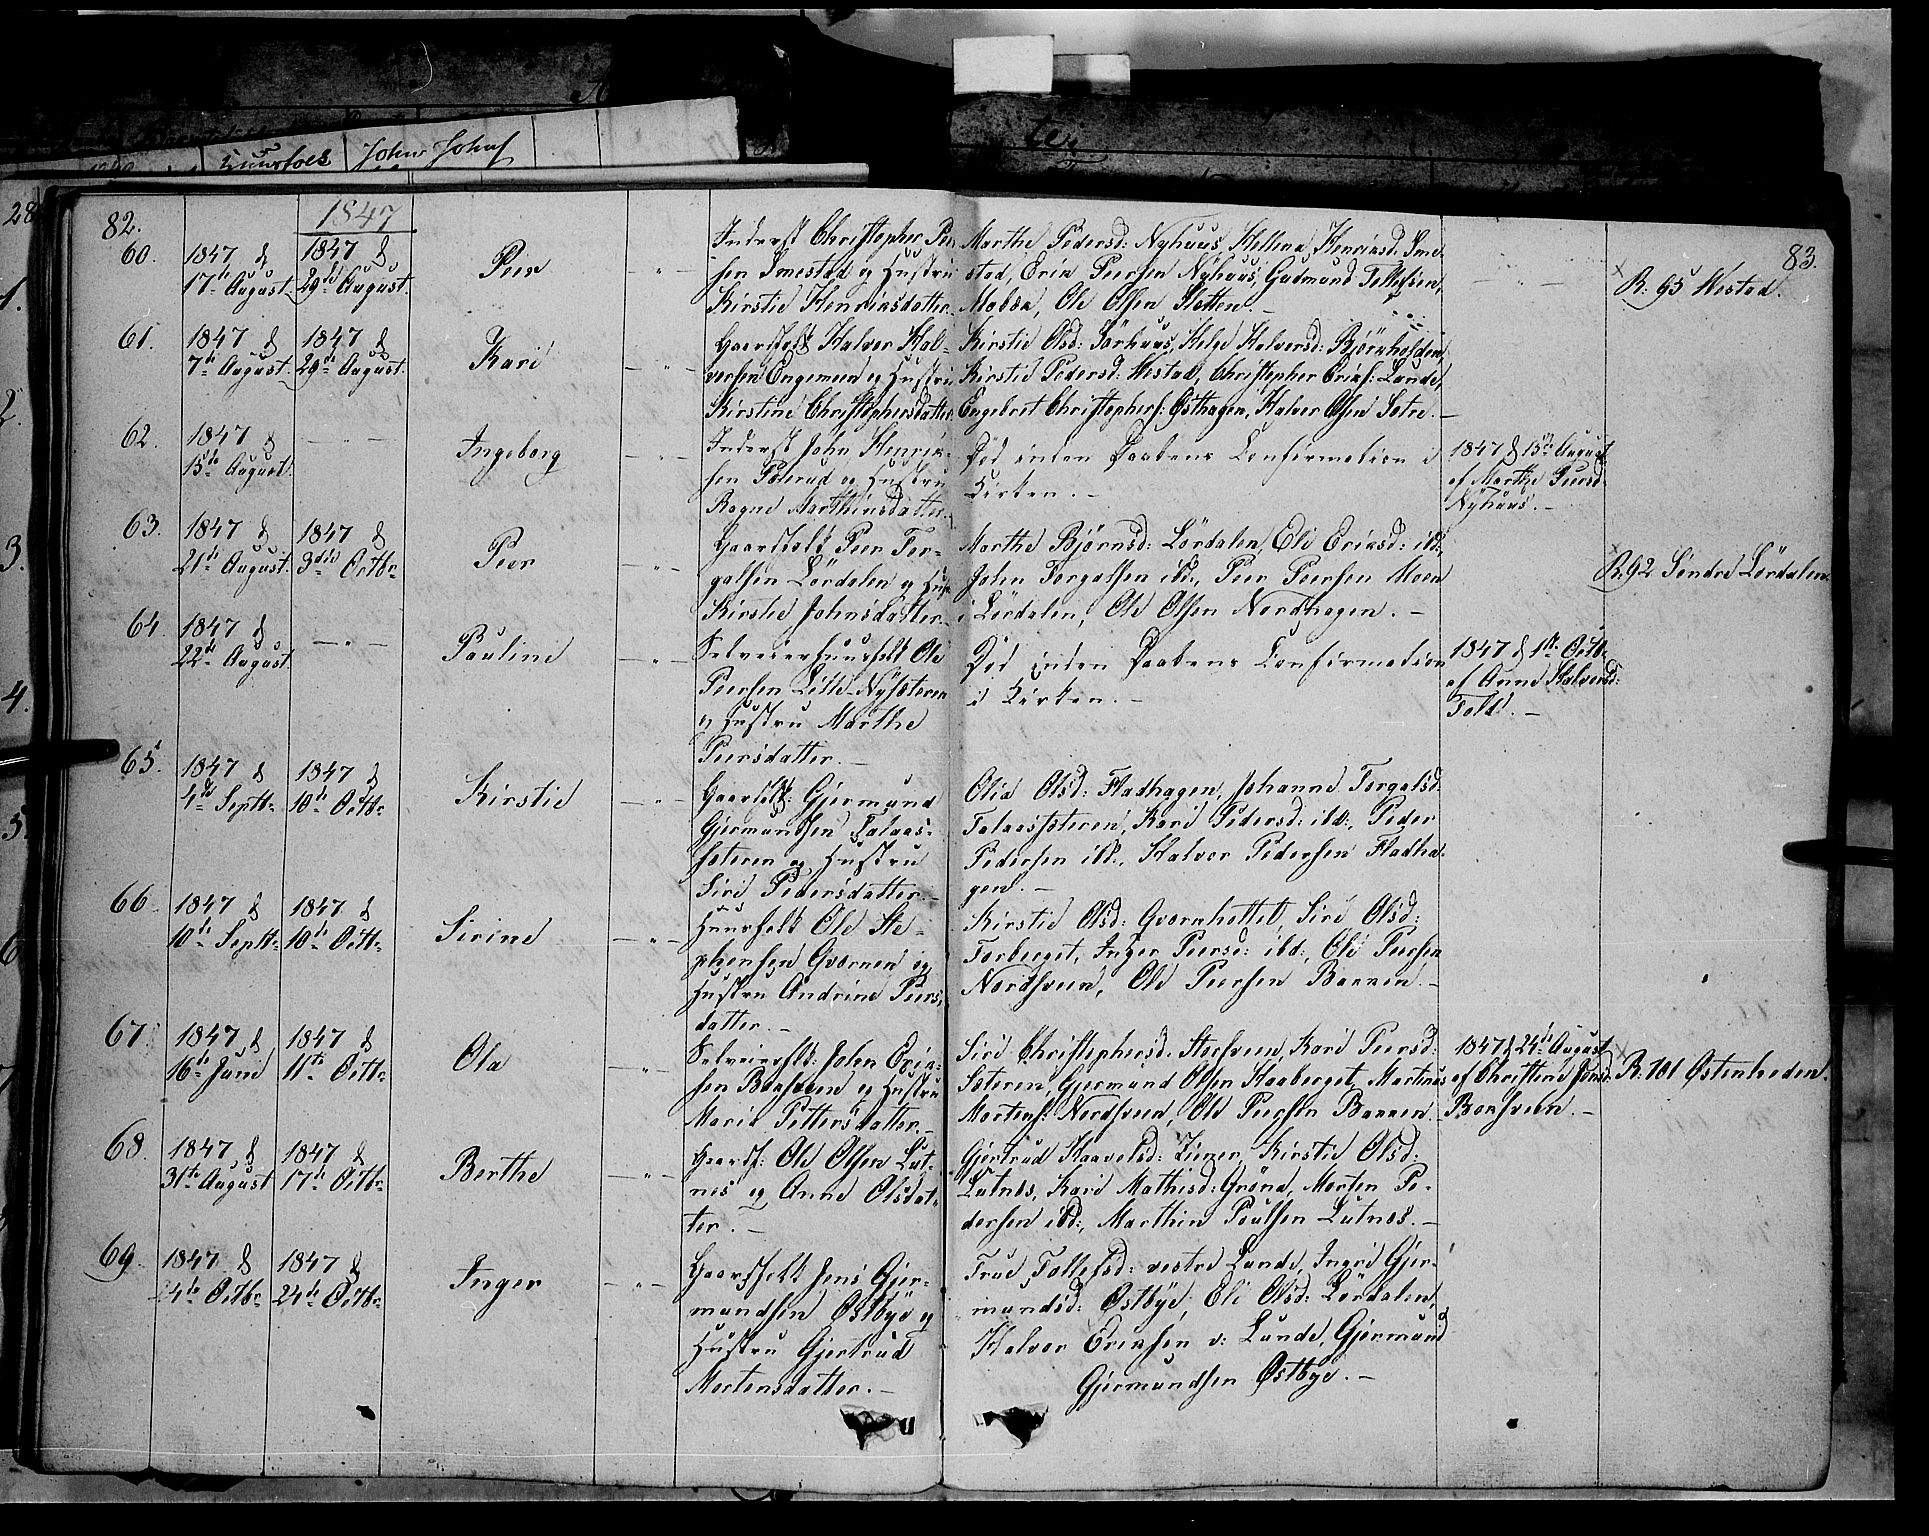 Huusfolk John Johns
28
82.
1847
83.
60.
1847 d
17de August.
1847 d
29de August.
Peer
Inderst Christopher Peer
sen Smestad og Hustru
Kirstie Henriksdatter
Marthe Pedersd: Nyhuus, Hellena Henriksd: Sme
stad, Erik Peersen Nyhuus, Gudmund Tollefsen,
Mobæk, Ole Olsen Sletten.-
R: 95 Nestad.
61.
1847 d
7de August.
1847 d
29de August.
Kari
Gaardfolk Halvor Hal-
vorsen Engemoen og Hustru
Kirstine Christophersdatter
Kirstie Olsd: Sörhuus, Helge Halvorsd: Björnholden,
Kirstie Pedersd: Nestad, Christopher Eriks: Lunde,
Engebret Christophers: Östhagen, Halvor Olsen Sætre.-
62.
1847 d
15de August.
Ingeborg
Inderst John Henrik-
sen og Hustru
Ragne Marthinsdatter.
Död inden Daabens Confirmation i
Kirken.-
1847 d 15de August
af Marthe Peersd:
Nyhuus.-
63.
1847 d
21de August.
1847 d
3die Octbr
Peer
Gaardfolk Peer Tor-
galsen Lördalen og Hust
Kirstie Johnsdatter.
Marthe Björnsd: Lördalen, Eli Eriksd: ibd:,
John Torgalsen ibd:, Peer Peersen Moen
i Lördalen, Ole Olsen Nordhagen.-
R: 92 Söndre Lördalen.
64.
1847 d
22de August
Pauline
Selveierhuusfolk Ole
Peersen Lille-Nysæteren
og Hustru Marthe
Peersdatter.-
Död inden Daabens Confirmation
i Kirken.-
1847 d 1ste Octb:
af Anne Halvorsd:
Fold.-
65.
1847 d
4de Septb:
1847 d
10de Octb:
Kirstie
Gaardfolk: Gjermund
Gjermundsen Talaas-
sæteren og Hustru
Siri Pedersdatter.-
Olia Olsd: Fladhagen, Johanne Torgalsd:
Talaassæteren, Kari Pedersd: ibd:, Peder
Pedersen ibd:, Halvor Pedersen Fladha-
gen.-
66.
1847 d
10de Septb:
1847 d
10de Octb:
Sirine
Huusfolk Ole Ste-
phensen Qværnen og
Hustru Andrine Peers-
datter.-
Kirstie Olsd: Qværnkollet, Siri Olsd:
Torberget, Inger Peersd: ibd:, Ole Peersen
Nordsveen, Ole Peersen Bakken.-
67.
1847 d
16de Juni
1847 d
11te Octb:
Ola
Selveierfolk: John Erik-
sen Bonsveen og Hustru
Marie Pettersdatter.-
Siri Christophersd: Storsveen, Kari Peersd:
Sæteren, Gjermund Olsen Haaberget, Martinus
Mortens: Nordsveen, Ole Peersen Bakken.
1847 d 24de August
af Christine Jonsd:
Bonsveen.-
R: 101 Østenheden.
68.
1847 d
31te August
1847 d
17de Octb:
Berthe
Gaardf: Ole Olsen Lut-
nes og Anne Olsdat-
ter.-
Gjertrud Haavelsd: Liener, Kirstie Olsd:
Lutnes, Kari Mathisd: Grönd, Morten Pe-
dersen ibd:, Marthin Poulsen Lutnes.-
69.
1847 d
4de Octb:
1847 d
24de Octb:
Inger
Gaardfolk Jens Gjer-
mundsen Østbye og
Hustru Gjertrud
Mortensdatter.-
True Tollefsd: vestre Lunde, Ingri Gjer-
mundsd: Østbye, Eli Olsd: Lördalen,
Halvor Eriksen v: Lunde, Gjermund
Gjermundsen Østbye.-